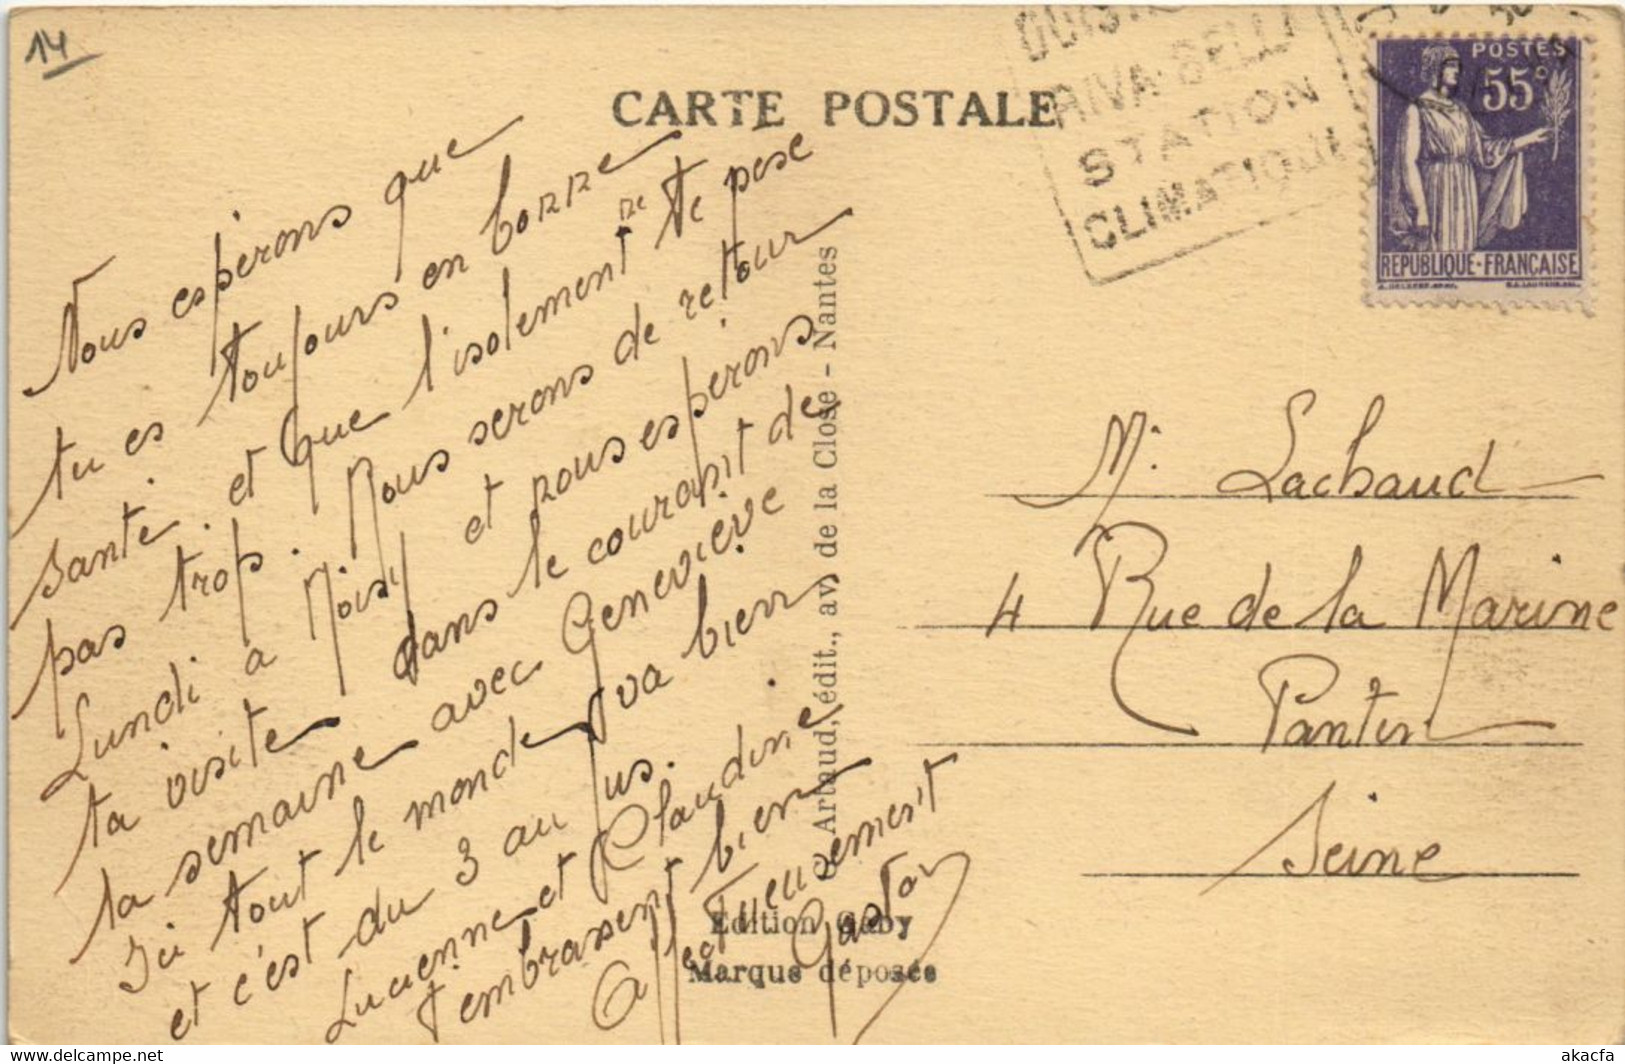 14
CARTE POSTALE
RIVA-BELLA
STATION
CLIMATIQUE
POSTES
55c
REPUBLIQUE-FRANÇAISE
Nous espérons que
tu es toujours en bonne
santé. et que l'isolement ne te pèse
pas trop. Nous serons de retour
Lundi a Noisy et nous espérons
ta visite dans le courant de
la semaine avec Geneviève
Ici tout le monde va bien
et c'est du 3 au jus.
Lucienne et Claudine
t'embrassent bien
Affectueusement
Gaston
Artaud, édit., av. de la Close - Nantes
Edition Gaby
Marque déposée
M. Lachaud
4 Rue de la Marine
Pantin
Seine
delcampe.net
akacfa